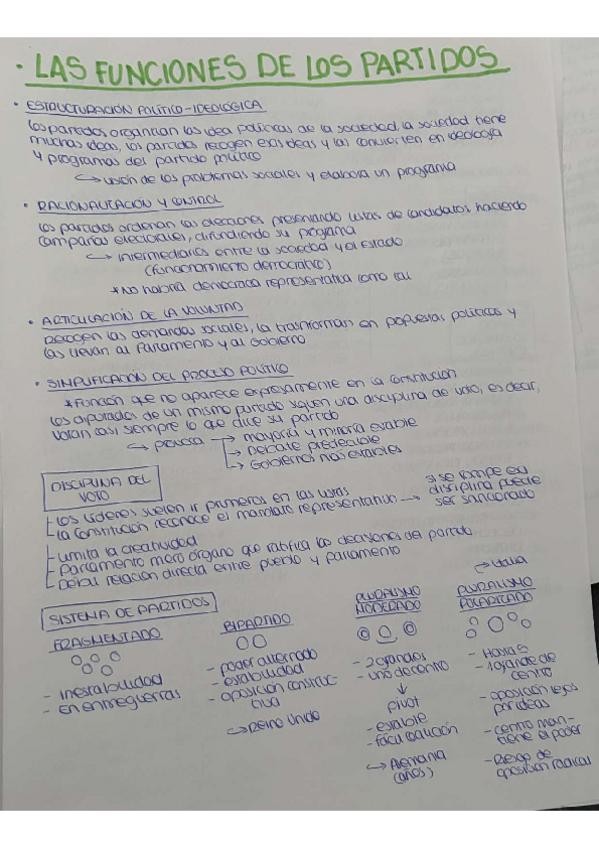 · LAS FUNCIONES DE LOS PARTIDOS
· ESTRUCTURACIÓN POLÍTICO-IDEOLÓGICA
Los partidos organizan las idea políticas de la sociedad, la sociedad tiene
muchas ideas, los partidos recogen esas ideas y las convierten en ideología
y programas del partido político
↳ visión de los problemas sociales y elabora un programa
· RACIONALIZACIÓN Y CONTROL
Los partidos ordenan las elecciones presentando listas de candidatos, haciendo
campañas electorales, difundiendo su programa
↳ intermediarios entre la sociedad y el Estado
(funcionamiento democrático)
* No habría democracia representativa como tal
· ARTICULACIÓN DE LA VOLUNTAD
Recogen las demandas sociales, la trasnforman en popuestas políticas y
las llevan al Parlamento y al Gobierno
· SIMPLIFICACIÓN DEL PROCESO POLÍTICO
* Función que no aparece expresamente en la Constitucion
Los diputados de un mismo partido siguen una disciplina de voto, es decir,
votan casi siempre lo que dice su partido
↳ provoca → mayoría y minoría estable
→ Debate predecible
→ Gobiernos más estables
DISCIPLINA DEL
VOTO
Los líderes suelen ir primeros en las listas
La Constitución reconoce el mandato representativo → si se rompe esa
disciplina puede
ser sancionado
Limita la creatividad
Parlamento mero órgano que ratifica las decisiones del partido
Débil relación directa entre pueblo y parlamento
SISTEMA DE PARTIDOS
FRAGMENTADO
- inestabilidad
- En entreguerras
BIPARTIDO
- poder alternado
- estabilidad
- oposición construc-
tiva
↳ Reino Unido
PLURALISMO
MODERADO
- 2 grandes
- uno de centro
↓
pivot
- estable
- fácil coalición
↳ Alemania
(años)
→ Italia
PLURALISMO
POLARIZADO
- Hasta 5
- 1 grande de
centro
- oposición lejos
por ideas
- centro man-
tiene el poder
- Riesgo de
oposición radical